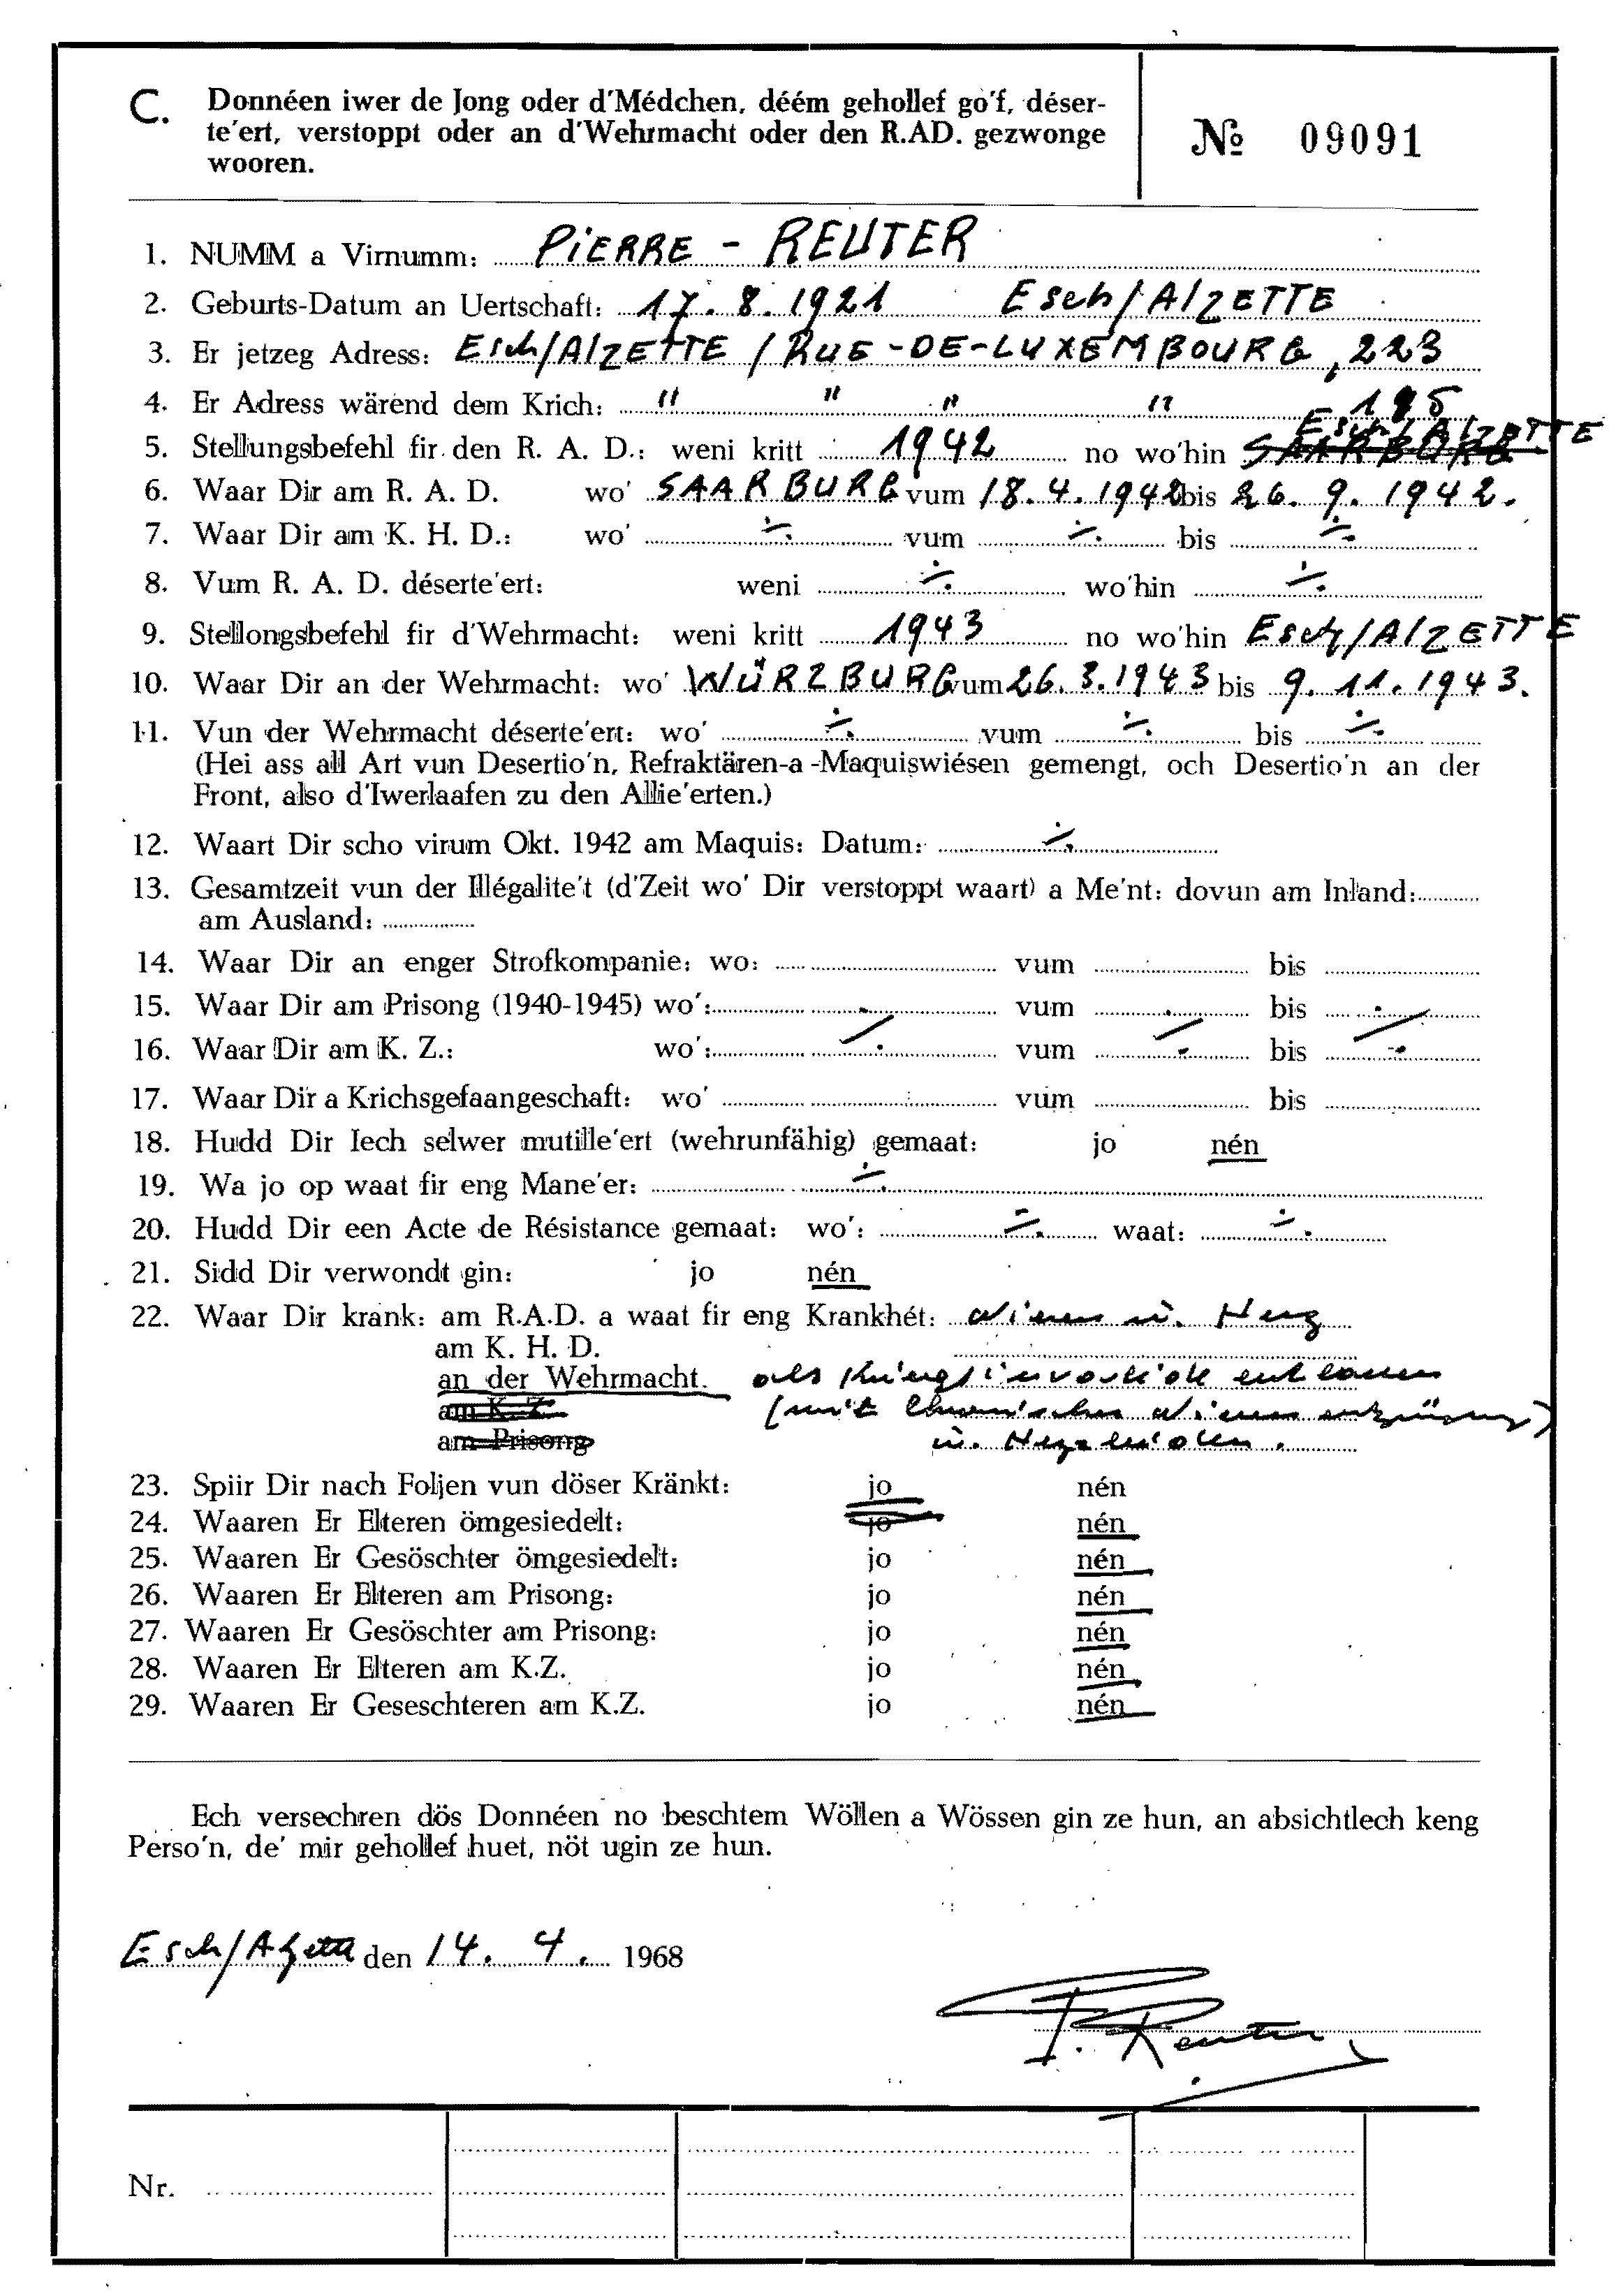 C. Donnéen iwer de Jong oder d'Médchen, déém gehollef go'f, déser-
te'ert, verstoppt oder an d'Wehrmacht oder den R.AD. gezwonge
wooren.
№ 09091
1. NUMM a Virnumm: PiERRE - REUTER
2. Geburts-Datum an Uertschaft: 17.8.1921 Esch/AlZETTE
3. Er jetzeg Adress: Esch/AlZETTE / RUE-DE-LUXEMBOURG, 223
4. Er Adress wärend dem Krich: " " " " 195
5. Stellungsbefehl fir den R. A. D.: weni kritt 1942 no wo'hin Esch/AlZETTE SAARBURG
6. Waar Dir am R. A. D. wo' SAARBURG vum 18.4.1942 bis 26.9.1942.
7. Waar Dir am K. H. D.: wo' ÷ vum ÷ bis ÷
8. Vum R. A. D. déserte'ert: weni ÷ wo'hin ÷
9. Stellongsbefehl fir d'Wehrmacht: weni kritt 1943 no wo'hin Esch/AlZETTE
10. Waar Dir an der Wehrmacht: wo' WÜRZBURG vum 26.3.1943 bis 9.11.1943.
11. Vun der Wehrmacht déserte'ert: wo' ÷ vum ÷ bis ÷
(Hei ass all Art vun Desertio'n, Refraktären-a-Maquiswiésen gemengt, och Desertio'n an der
Front, also d'Iwerlaafen zu den Allie'erten.)
12. Waart Dir scho virum Okt. 1942 am Maquis: Datum: ÷
13. Gesamtzeit vun der Illégalite't (d'Zeit wo' Dir verstoppt waart) a Me'nt: dovun am Inland:
am Ausland:
14. Waar Dir an enger Strofkompanie: wo: vum bis
15. Waar Dir am Prisong (1940-1945) wo': vum bis
16. Waar Dir am K. Z.: wo': ÷ vum ÷ bis ÷
17. Waar Dir a Krichsgefaangeschaft: wo' vum bis
18. Hudd Dir Iech selwer mutille'ert (wehrunfähig) gemaat: jo nén
19. Wa jo op waat fir eng Mane'er: ÷
20. Hudd Dir een Acte de Résistance gemaat: wo': ÷ waat: ÷
21. Sidd Dir verwondt gin: jo nén
22. Waar Dir krank: am R.A.D. a waat fir eng Krankhét: Nieren u. Herz
am K. H. D.
an der Wehrmacht. als Kriegsinvalide entlassen
am K. Z. (mit chronischer Nierenentzündung)
am Prisong u. Herzleiden.
23. Spiir Dir nach Foljen vun döser Kränkt: jo nén
24. Waaren Er Elteren ömgesiedelt: jo nén
25. Waaren Er Gesöschter ömgesiedelt: jo nén
26. Waaren Er Elteren am Prisong: jo nén
27. Waaren Er Gesöschter am Prisong: jo nén
28. Waaren Er Elteren am K.Z. jo nén
29. Waaren Er Geseschteren am K.Z. jo nén
Ech versechren dös Donnéen no beschtem Wöllen a Wössen gin ze hun, an absichtlech keng
Perso'n, de' mir gehollef huet, nöt ugin ze hun.
Esch/Alzette den 14. 4. 1968
P. Reuter
Nr.